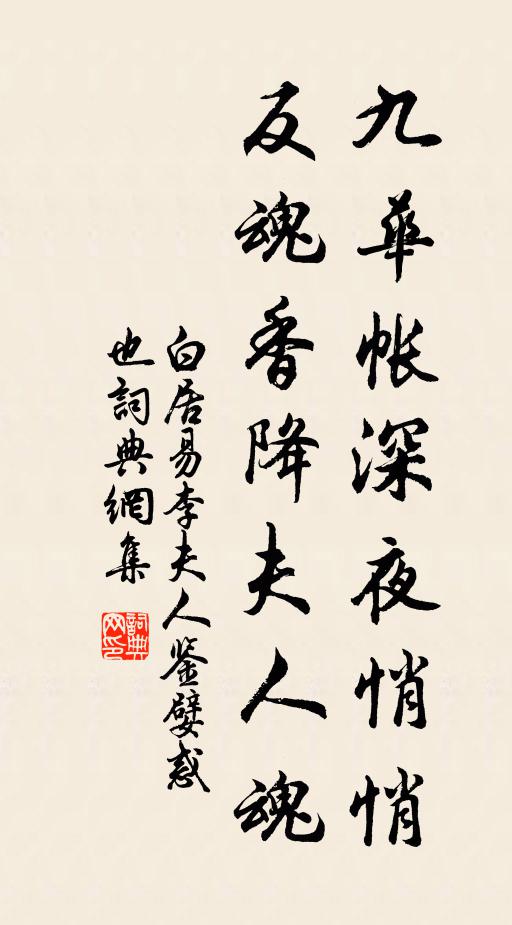 九華帳深夜悄悄
反魂香降夫人魂
白居易李夫人鉴嬖惑
也詞典網集
詞典
网印